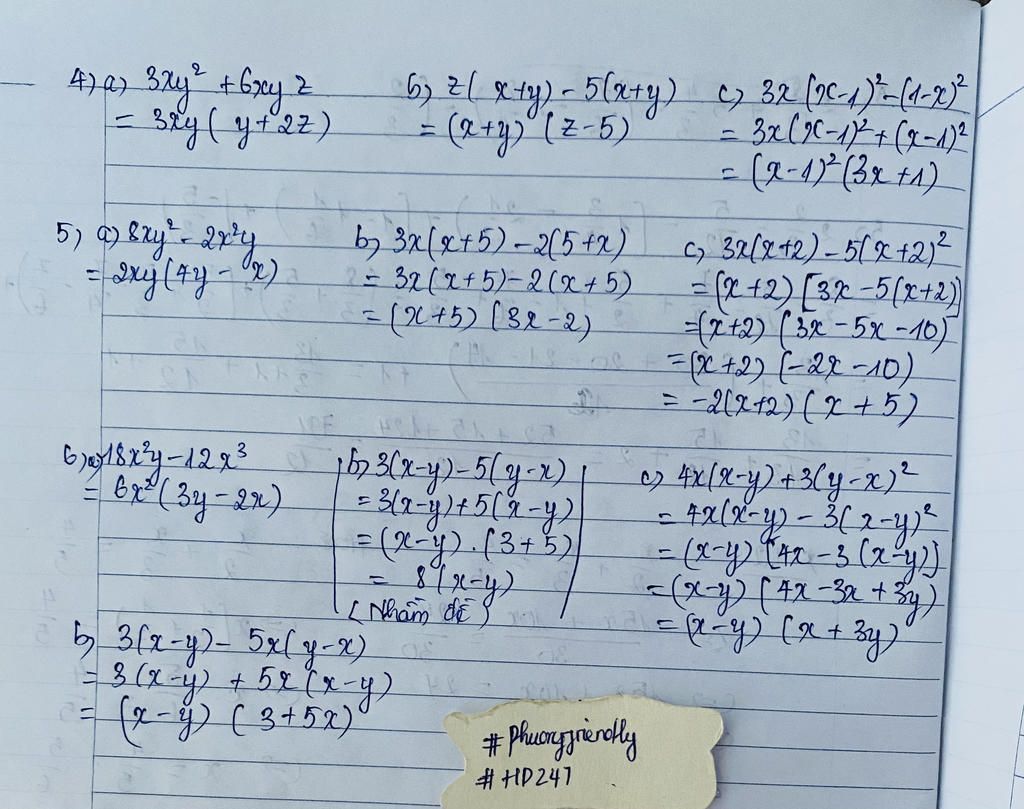 4) a) 3xy² + 6xyz
= 3xy(y+2z)
b) z(x+y) - 5(x+y)
= (x+y)(z-5)
c) 3x(x-1)² - (1-x)²
= 3x(x-1)² + (x-1)²
= (x-1)²(3x+1)
5) a) 8xy² - 2x²y
= 2xy(4y - x)
b) 3x(x+5) - 2(5+x)
= 3x(x+5) - 2(x+5)
= (x+5)(3x-2)
c) 3x(x+2) - 5(x+2)²
= (x+2)[3x - 5(x+2)]
= (x+2)(3x - 5x - 10)
= (x+2)(-2x - 10)
= -2(x+2)(x+5)
6) a) 18x²y - 12x³
= 6x²(3y - 2x)
b) 3(x-y) - 5(y-x)
= 3(x-y) + 5(x-y)
= (x-y).(3+5)
= 8(x-y)
(Nhầm đề)
c) 4x(x-y) + 3(y-x)²
= 4x(x-y) - 3(x-y)²
= (x-y)[4x - 3(x-y)]
= (x-y)(4x - 3x + 3y)
= (x-y)(x+3y)
b) 3(x-y) - 5x(y-x)
= 3(x-y) + 5x(x-y)
= (x-y)(3+5x)
# HD247